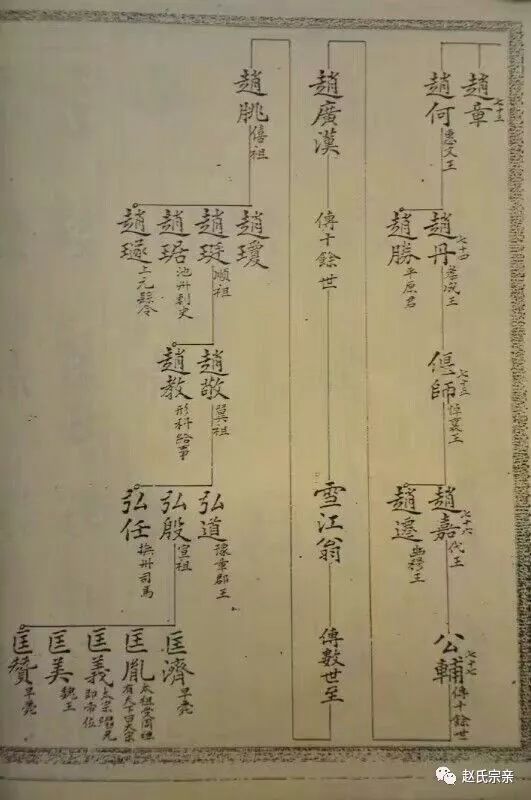 趙章 七十三
趙何 惠文王
趙丹 七十四 孝成王
趙勝 平原君
偃師 七十五 悼襄王
趙嘉 七十六 代王
趙遷 幽穆王
公輔 七十七 傳十餘世
趙廣漢
傳十餘世
雪江翁
傳數世至
趙朓 僖祖
趙瓊
趙珽 順祖
趙琚 池州刺史
趙璲 上元縣令
趙敬 翼祖
趙教 刑科給事
弘道 豫章郡王
弘殷 宣祖
弘任 撫州司馬
匡濟 早薨
匡胤 太祖受周禪有天下曰大宋
匡義 太宗
匡美 魏王
匡贊 早薨
赵氏宗亲